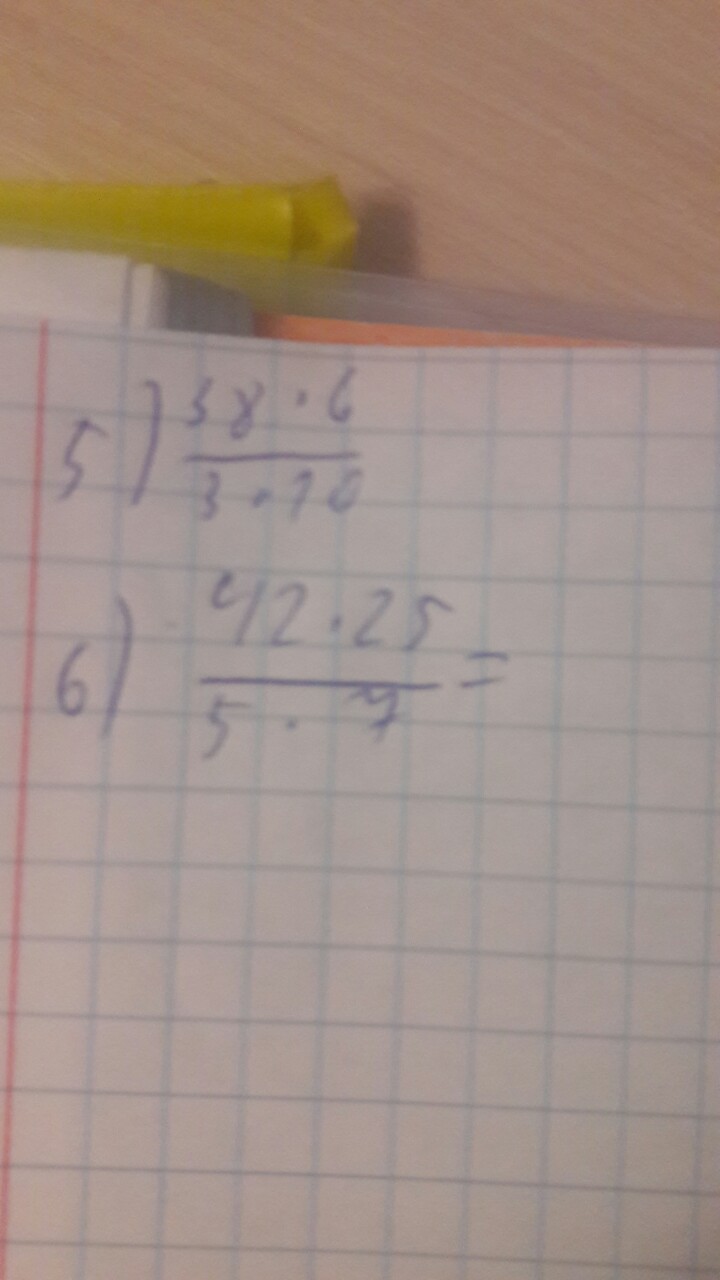 5) 38 · 6
3 · 10
6) 42 · 25 =
5 · 7